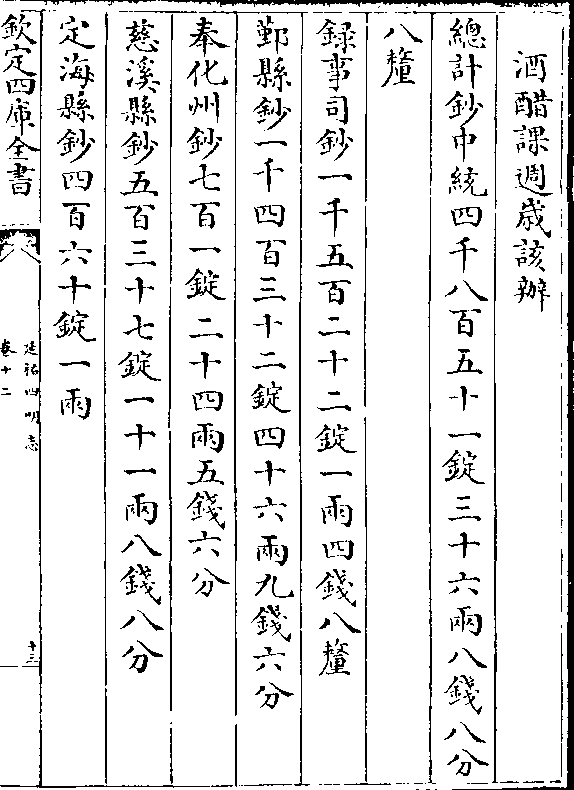 酒醋課週歲該辦
總計鈔中統四千八百五十一錠三十六兩八錢八分
八釐
録事司鈔一千五百二十二錠一兩四錢八釐
鄞縣鈔一千四百三十二錠四十六兩九錢六分
奉化州鈔七百一錠二十四兩五錢六分
慈溪縣鈔五百三十七錠一十一兩八錢八分
定海縣鈔四百六十錠一兩
欽定四庫全書
延祐四明志
卷十二
十三